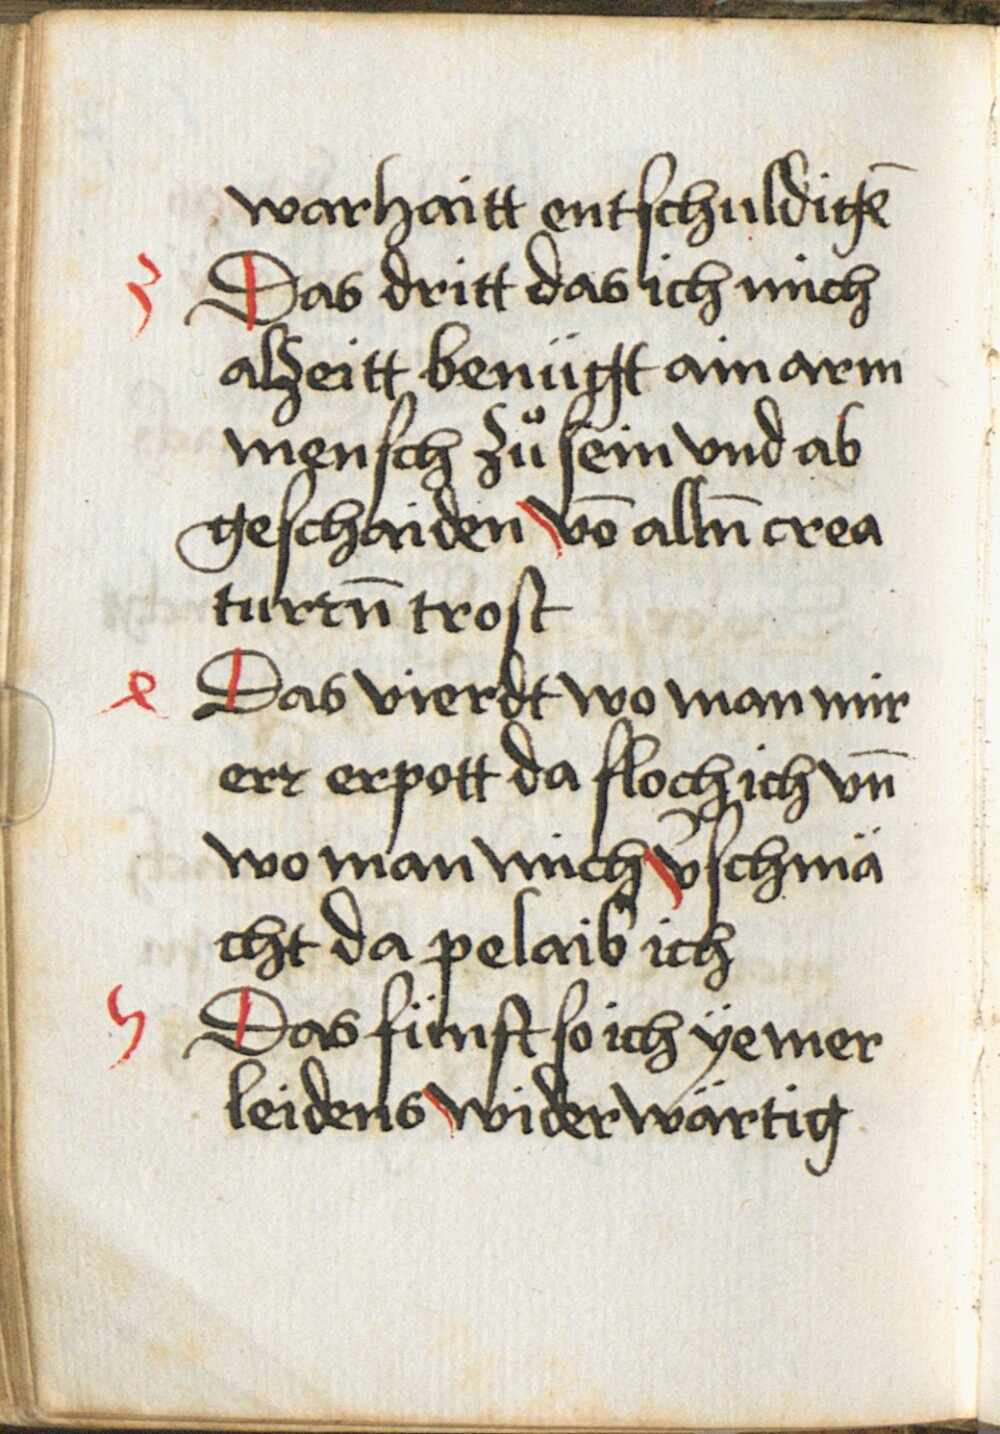 warhaitt entschuldigē
3 Das dritt das ich mich
alzeitt benügt ain arm
mensch zů sein vnd ab
geschaiden vō alln̄ crea
turen̄ trost
4 Das vierdt wo man mir
err erpott da floch ich vn̄
wo man mich v̄schmä
cht da pelaib ich
5 Das fünft so ich ÿemer
leidens widerwärtig